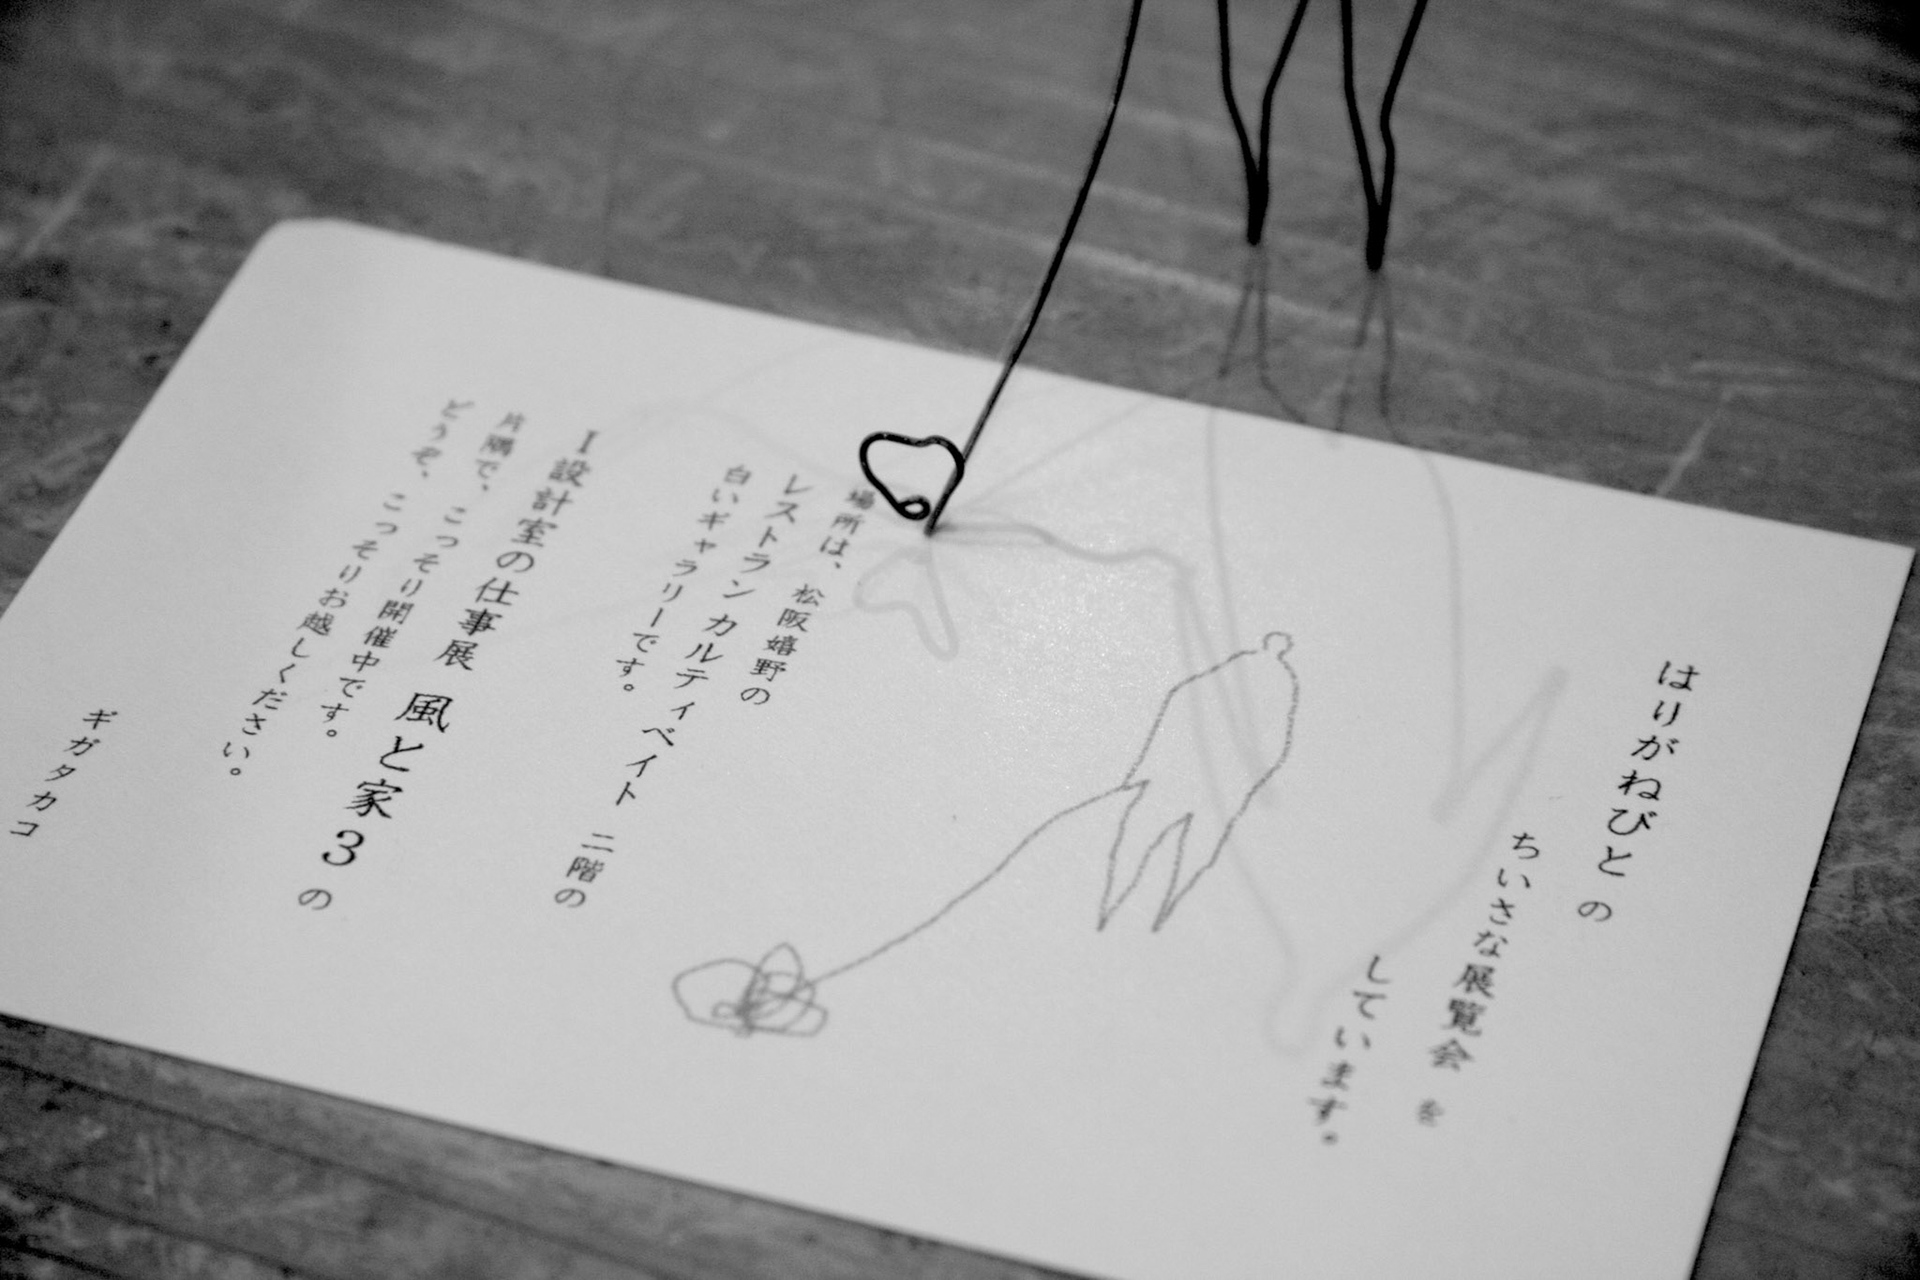 はりがねびと の
ちいさな展覧会 を
しています。
場所は、松阪嬉野の
レストラン カルティベイト 二階の
白いギャラリーです。
I設計室の仕事展 風と家3の
片隅で、こっそり開催中です。
どうぞ、こっそりお越しください。
ギガタカコ